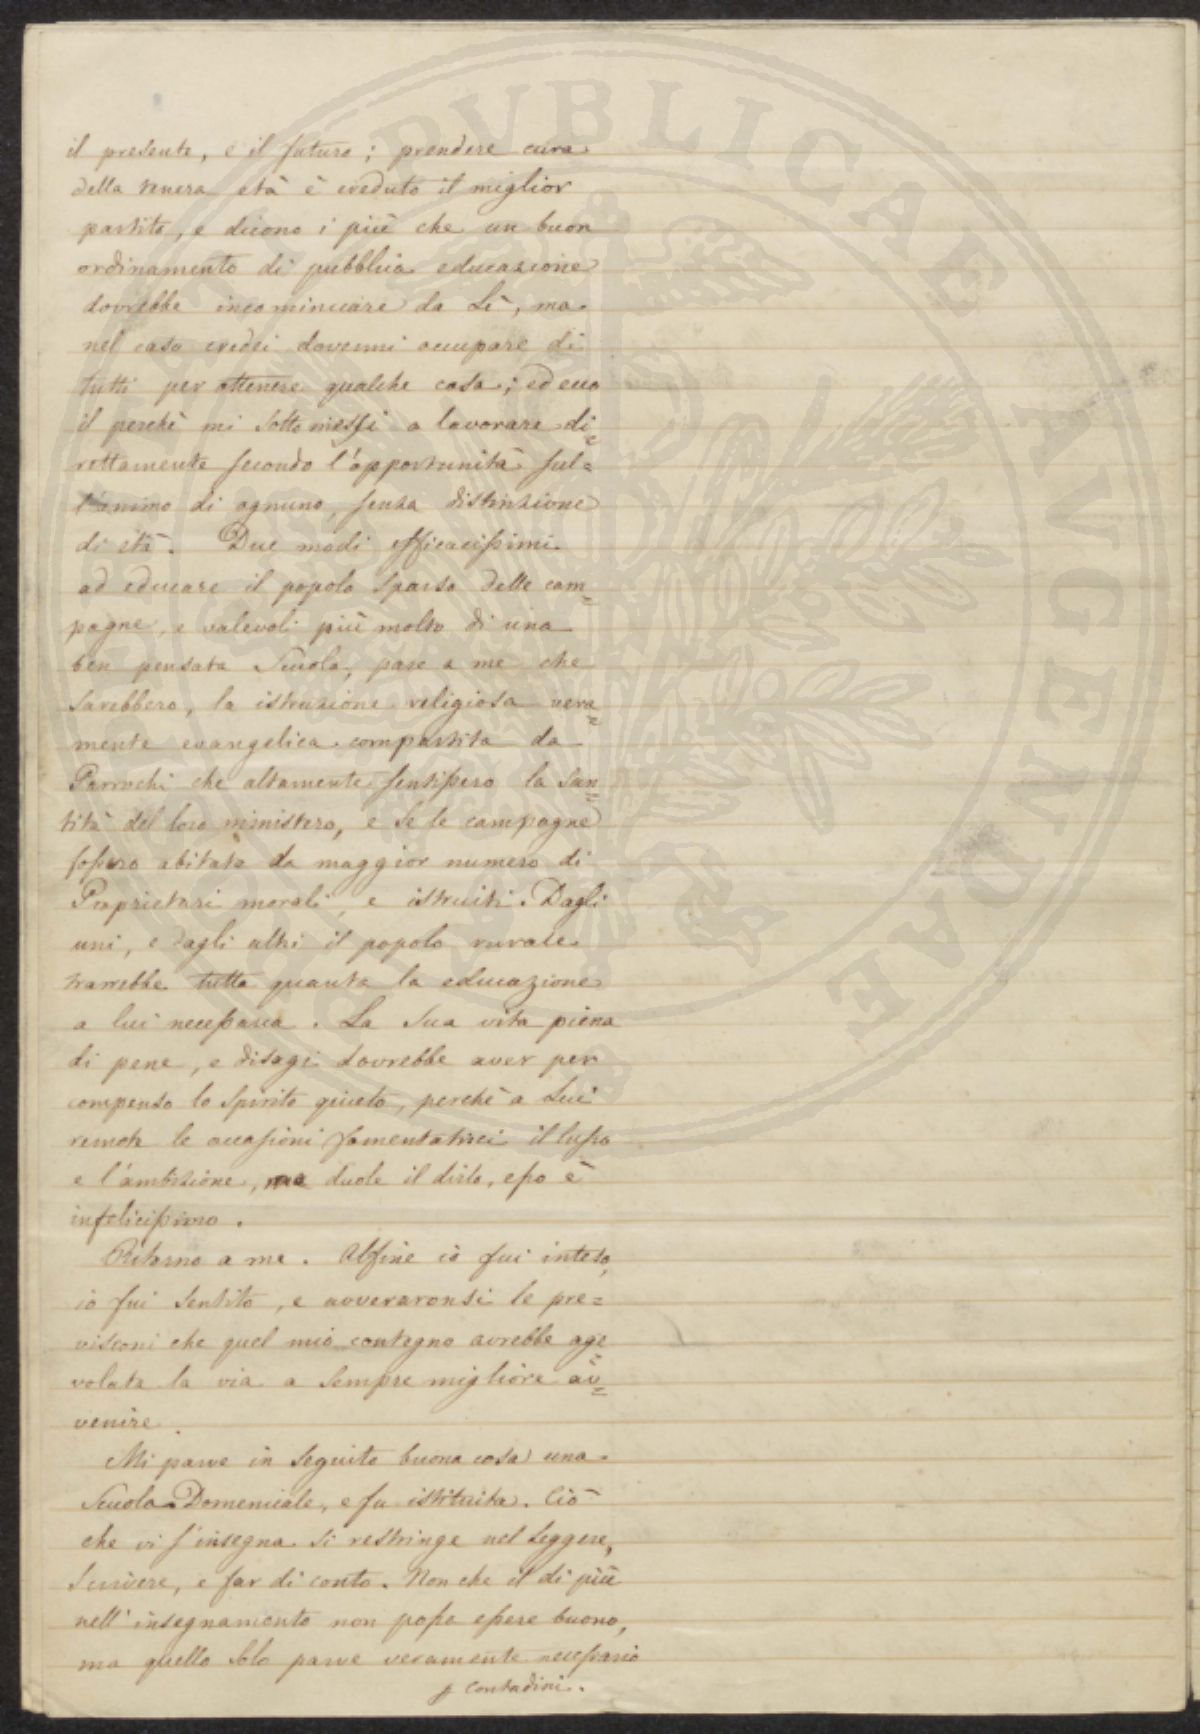 il presente, e il futuro; prendere cura
della tenera età è creduto il miglior
partito, e dicono i più che un buon
ordinamento di pubblica educazione
dovrebbe incominciare da Lì, ma
nel caso credei dovermi occupare di
tutti per ottenere qualche cosa; ed ecco
il perchè mi sottomessi a lavorare di=
rettamente secondo l'opportunità sul=
l'animo di ognuno, senza distinzione
di età. Due modi efficacissimi
ad educare il popolo sparso delle cam=
pagne, e valevoli più molto di una
ben pensata Scuola, pare a me che
sarebbero, la istruzione religiosa vera=
mente evangelica compartita da
Parrochi che altamente sentissero la San=
tità del loro ministero, e se le campagne
fossero abitate da maggior numero di
Proprietari morali, e istruiti. Dagli
uni, e dagli altri il popolo rurale
trarrebbe tutta quanta la educazione
a lui necessaria. La sua vita piena
di pene, e disagi dovrebbe aver per
compenso lo Spirito quieto, perchè a Lui
remote le occasioni fomentatrici il lusso
e l'ambizione, ma duole il dirlo, esso è
infelicissimo.
Ritorno a me. Alfine io fui inteso,
io fui sentito, e avveraronsi le pre=
visioni che quel mio contegno avrebbe age=
volata la via a sempre migliore av=
venire.
Mi parve in seguito buona cosa una
Scuola Domenicale, e fu istituita. Ciò
che vi s'insegna si restringe nel leggere,
scrivere, e far di conto. Non che il di più
nell'insegnamento non possa essere buono,
ma quello solo parve veramente necessario
p contadini.
PUBLICAE AVGENDAE